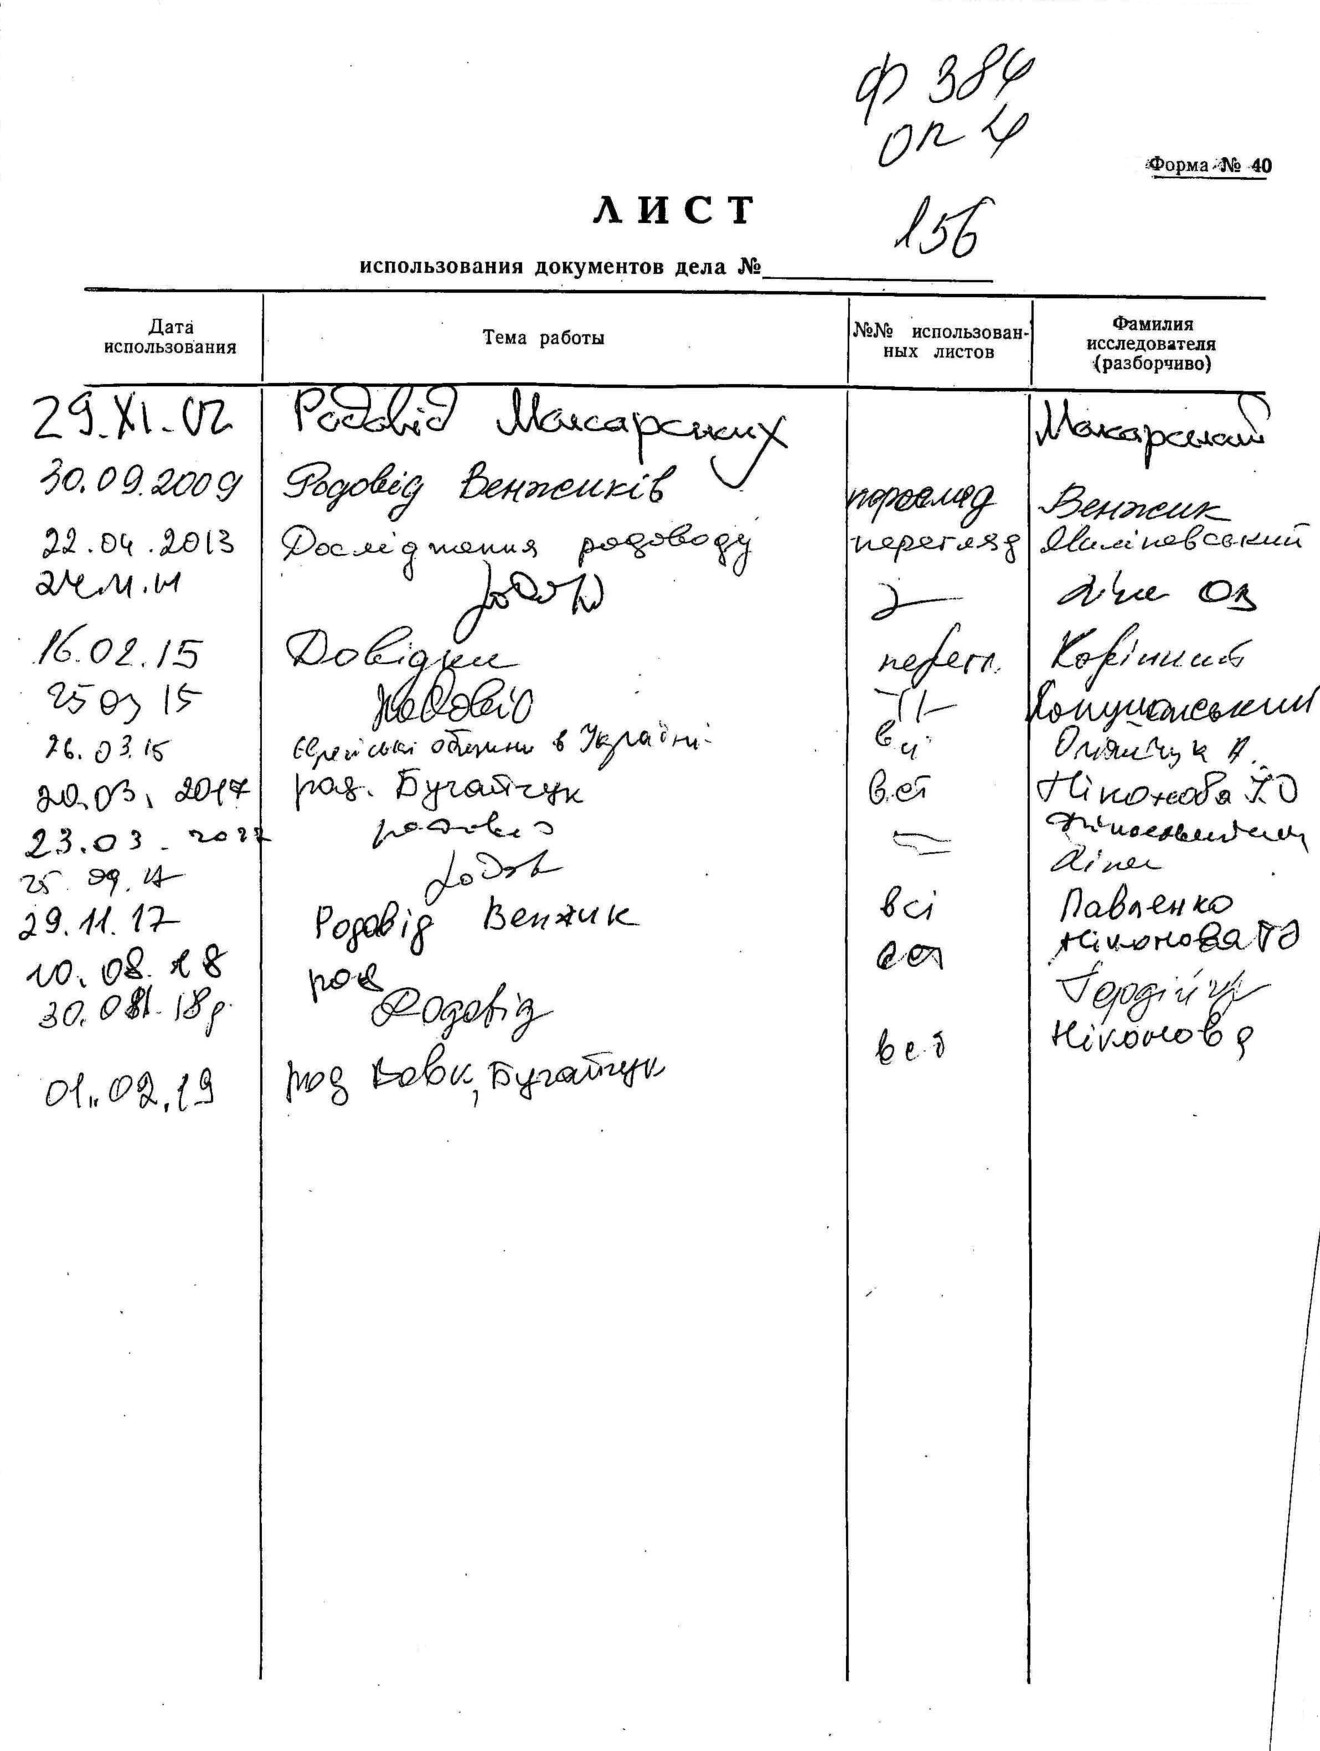 Ф 384
оп 4
Форма № 40
ЛИСТ
156
использования документов дела №
Дата использования
Тема работы
№№ использован-ных листов
Фамилия исследователя (разборчиво)
29.XI.02 Родовід Макарських Макарський
30.09.2009 Родовід Венжиків перегляд Венжик
22.04.2013 Дослідження родоводу перегляд
16.02.15 Довідки перегл. Корінний
25 03 15 Родовід -//-
26.03.15 Єврейські общини в Україні всі
20.03.2017 род. Бугайчук всі Ніконова Т.О
23.03. родовід
25.09.17 Родов
29.11.17 Родовід Венжик всі Павленко
10.08.18 род всі Ніконова ТО
30.08.18р. Родовід Гордійчук
01.02.19 род Вовк, Бугайчук всі Ніконова